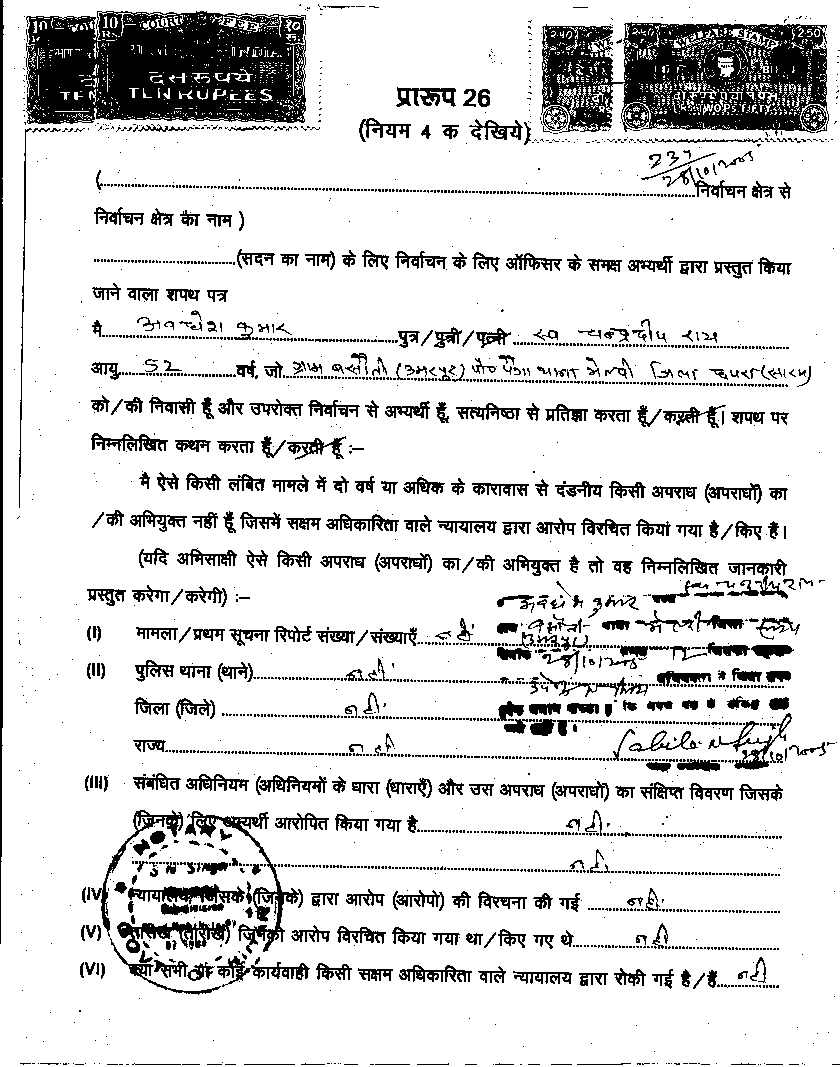 10 COURT FEES १०
दस रुपये
TEN RUPEES
2.50 WELFARE STAMP 2.50
प्रारूप 26
(नियम 4 क देखिये)
237
28/10/2005
(.......... निर्वाचन क्षेत्र से
निर्वाचन क्षेत्र का नाम )
..........(सदन का नाम) के लिए निर्वाचन के लिए ऑफिसर के समक्ष अभ्यर्थी द्वारा प्रस्तुत किया
जाने वाला शपथ पत्र
मै अवधेश कुमार पुत्र/पुत्री/पत्नी स्व चन्द्रदीप राय
आयु 52 वर्ष, जो ग्राम बसौती (उमरपुर) पो० पैगा थाना भेल्दी जिला छपरा (सारण)
को/की निवासी हूँ और उपरोक्त निर्वाचन से अभ्यर्थी हूँ, सत्यनिष्ठा से प्रतिज्ञा करता हूँ/करती हूँ। शपथ पर
निम्नलिखित कथन करता हूँ/करती हूँ :–
मै ऐसे किसी लंबित मामले में दो वर्ष या अधिक के कारावास से दंडनीय किसी अपराध (अपराधों) का
/की अभियुक्त नहीं हूँ जिसमें सक्षम अधिकारिता वाले न्यायालय द्वारा आरोप विरचित किया गया है/किए हैं।
(यदि अभिसाक्षी ऐसे किसी अपराध (अपराधों) का/की अभियुक्त है तो वह निम्नलिखित जानकारी
प्रस्तुत करेगा/करेगी) :–
अवधेश कुमार
(I) मामला/प्रथम सूचना रिपोर्ट संख्या/संख्याएँ नहीं
(उमरपुर)
28/10/2005
(II) पुलिस थाना (थाने) नहीं
जिला (जिले) नहीं
राज्य नहीं
28/10/2005
(III) संबंधित अधिनियम (अधिनियमों के धारा (धाराएँ) और उस अपराध (अपराधों) का संक्षिप्त विवरण जिसके
(जिनके) लिए अभ्यर्थी आरोपित किया गया है नहीं
नहीं
NOTARY
S N Singh
(IV) न्यायालय जिसके (जिनके) द्वारा आरोप (आरोपो) की विरचना की गई नहीं
(V) तारीख (तारीखें) जिनको आरोप विरचित किया गया था/किए गए थे नहीं
(VI) क्या सभी या कोई कार्यवाही किसी सक्षम अधिकारिता वाले न्यायालय द्वारा रोकी गई है/हैं नहीं